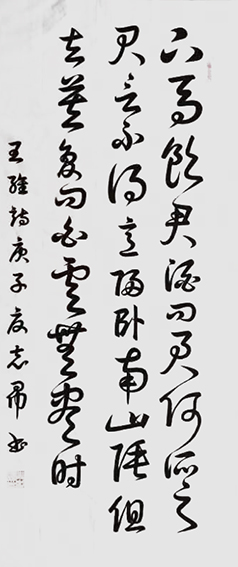 下马饮君酒问君何所之
君言不得意归卧南山陲但
去莫复问白云无尽时
王维诗庚子夏志昂书